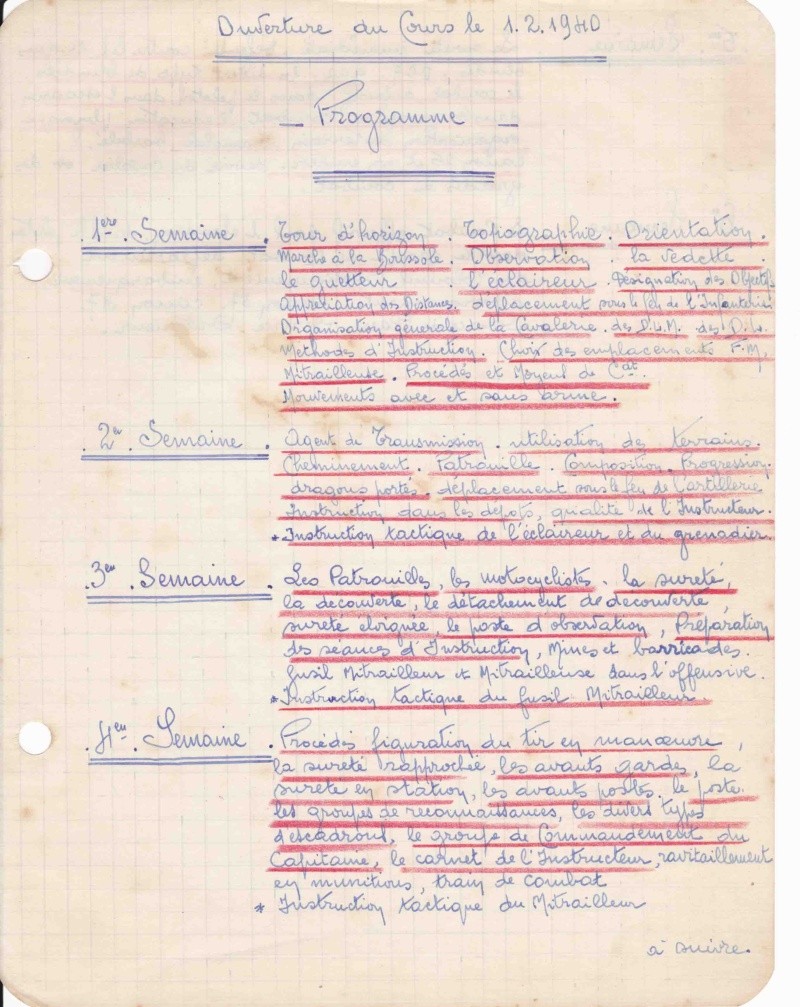 Ouverture du Cours le 1.2.1940
_ Programme _
.1ère. Semaine . Tour d'horizon . Topographie . Orientation.
Marche à la Boussole . Observation . la vedette .
le guetteur . l'éclaireur . Désignation des Objectifs
Appréciation des Distances. déplacement sous le feu de l'Infanterie
Organisation générale de la Cavalerie. des D.L.M. des D.L.
Méthodes d'Instruction. Choix des emplacements F.M,
Mitrailleuse . Procédés et Moyens de Cdt.
Mouvements avec et sans arme.
2e . Semaine . Agent de Transmission . utilisation des terrains.
Cheminement. Patrouille . Composition. Progression.
dragons portés . déplacement sous le feu de l'artillerie
Instruction dans les dépots, qualité de l'Instructeur.
* Instruction tactique de l'éclaireur et du grenadier.
.3em . Semaine . Les Patrouilles, les motocyclistes. la sureté,
la découverte, le détachement de découverte
sureté éloignée, le poste d'observation, Préparation
des séances d'Instruction, Mines et barricades.
fusil Mitrailleur et Mitrailleuse dans l'offensive.
* Instruction tactique du fusil Mitrailleur.
.4em. Semaine . Procédés figuration du tir en manœuvre,
la sureté rapprochée, les avants gardes, la
sureté en station, les avants postes. le poste.
les groupes de reconnaissances, les divers types
d'escadrons, le groupe de Commandement du
Capitaine, le carnet de l'Instructeur, ravitaillement
en munitions, train de combat
* Instruction tactique du Mitrailleur
à suivre.